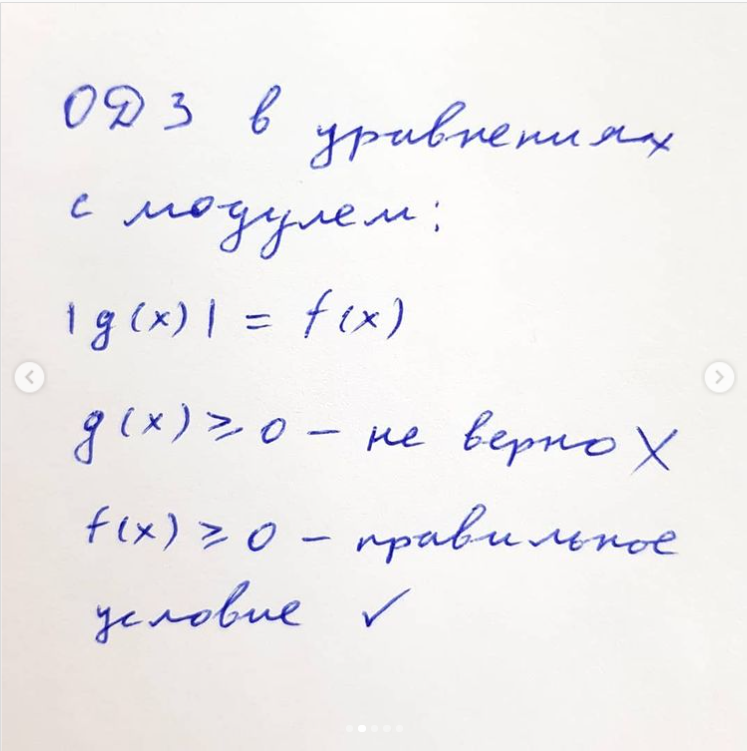 ОДЗ в уравнениях
с модулем:
|g(x)| = f(x)
g(x) ⩾ 0 – не верно X
f(x) ⩾ 0 – правильное
условие ✓